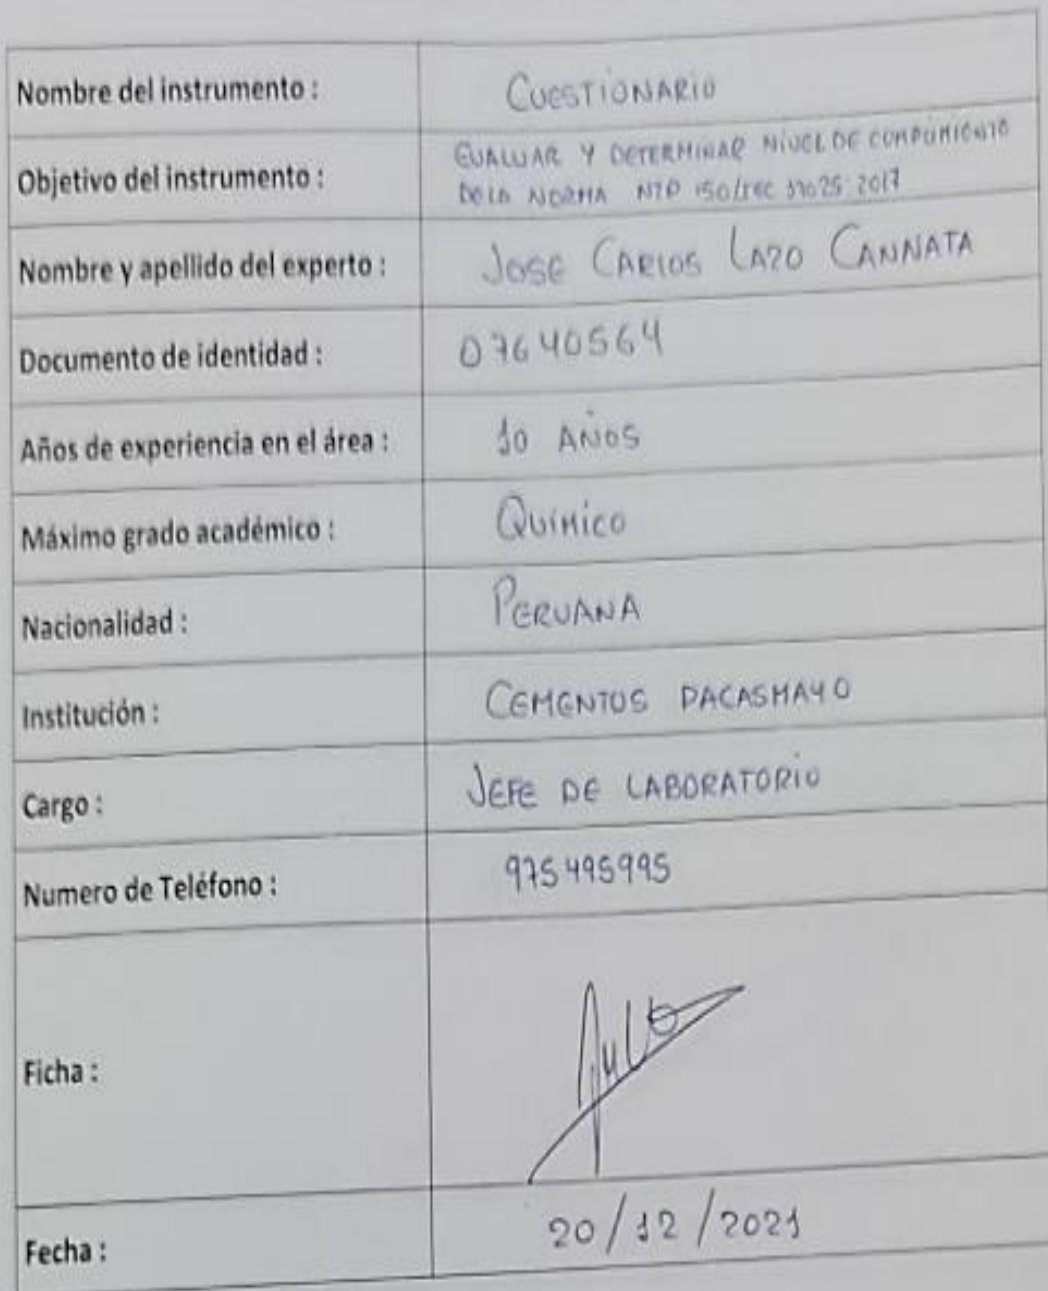 Nombre del instrumento : CUESTIONARIO
Objetivo del instrumento : EVALUAR Y DETERMINAR NIVEL DE CUMPLIMIENTO
DE LA NORMA NTP ISO/IEC 17025:2017
Nombre y apellido del experto : JOSE CARLOS LAZO CANNATA
Documento de identidad : 07640564
Años de experiencia en el área : 10 AÑOS
Máximo grado académico : QUIMICO
Nacionalidad : PERUANA
Institución : CEMENTOS PACASMAYO
Cargo : JEFE DE LABORATORIO
Numero de Teléfono : 975495995
Ficha :
Fecha : 20/12/2021